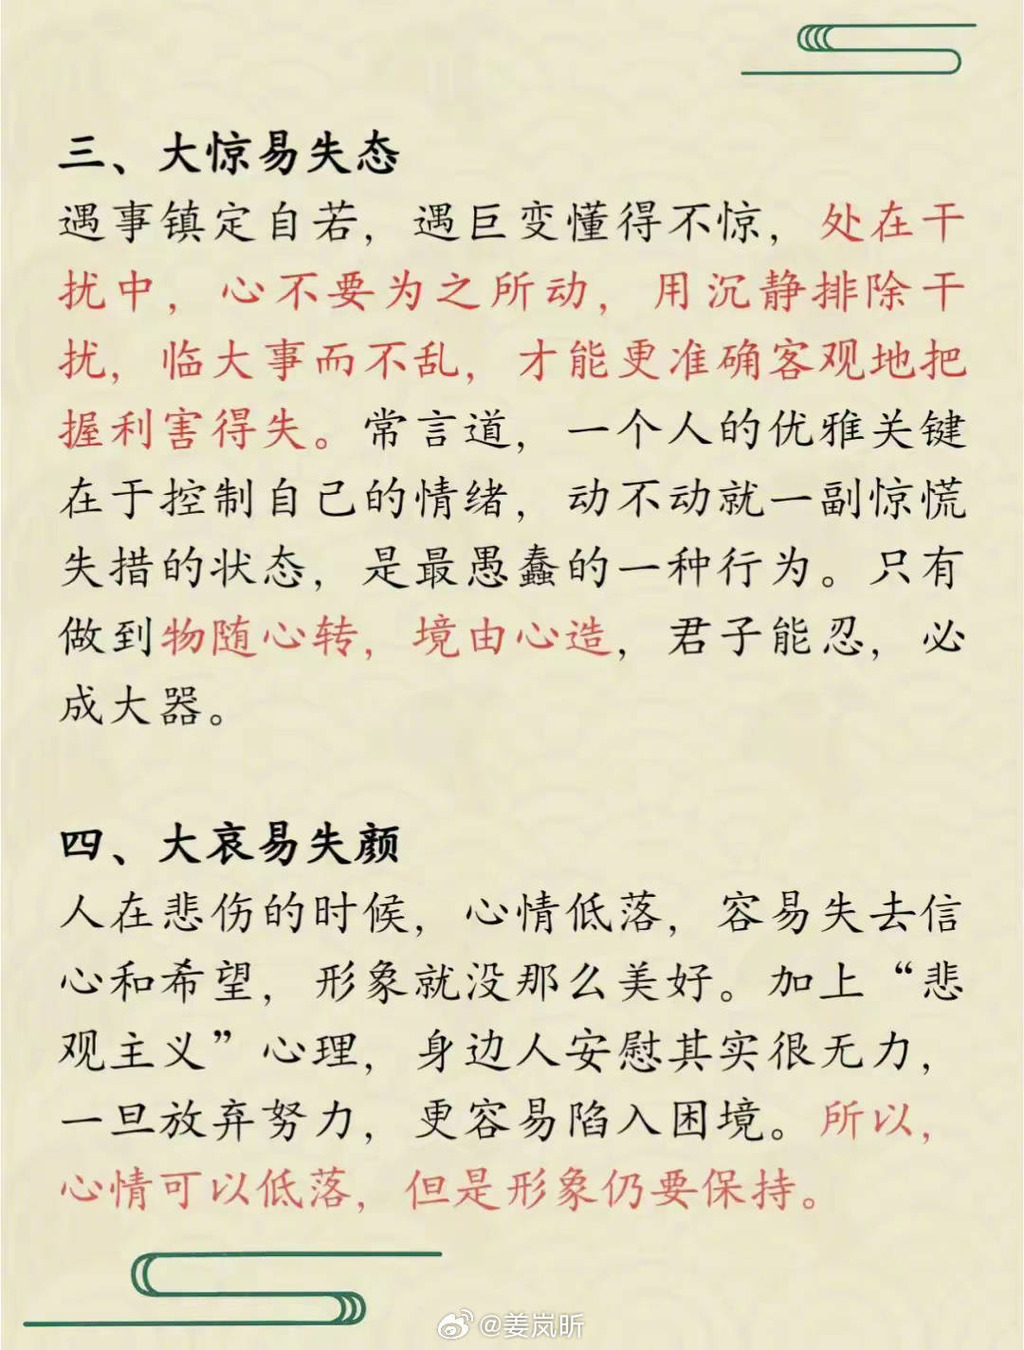 三、大惊易失态
遇事镇定自若，遇巨变懂得不惊，处在干
扰中，心不要为之所动，用沉静排除干
扰，临大事而不乱，才能更准确客观地把
握利害得失。常言道，一个人的优雅关键
在于控制自己的情绪，动不动就一副惊慌
失措的状态，是最愚蠢的一种行为。只有
做到物随心转，境由心造，君子能忍，必
成大器。
四、大哀易失颜
人在悲伤的时候，心情低落，容易失去信
心和希望，形象就没那么美好。加上“悲
观主义”心理，身边人安慰其实很无力，
一旦放弃努力，更容易陷入困境。所以，
心情可以低落，但是形象仍要保持。
@姜岚昕